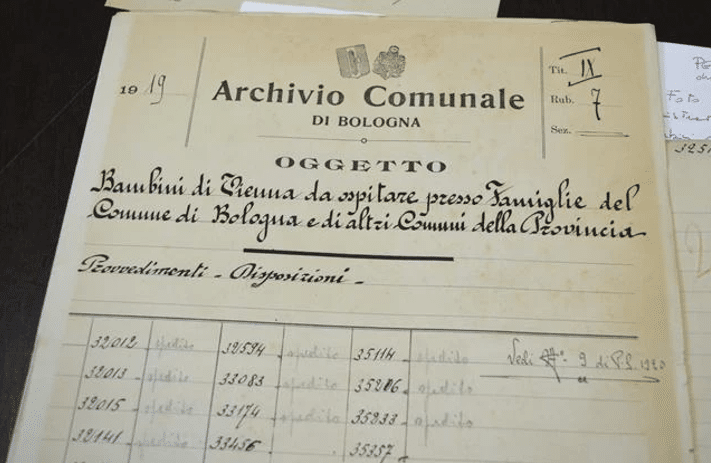 1919
Archivio Comunale
DI BOLOGNA
Tit. IX
Rub. 7
Sez.
OGGETTO
Bambini di Vienna da ospitare presso Famiglie del
Comune di Bologna e di altri Comuni della Provincia
Provvedimenti - Disposizioni -
32012 spedito 32594 spedito 35114 spedito
32013 spedito 33083 spedito 35206 spedito
32015 spedito 33174 spedito 35233 spedito
32141 spedito 33456 35357
Vedi 9 di P.S. 1920
Foto